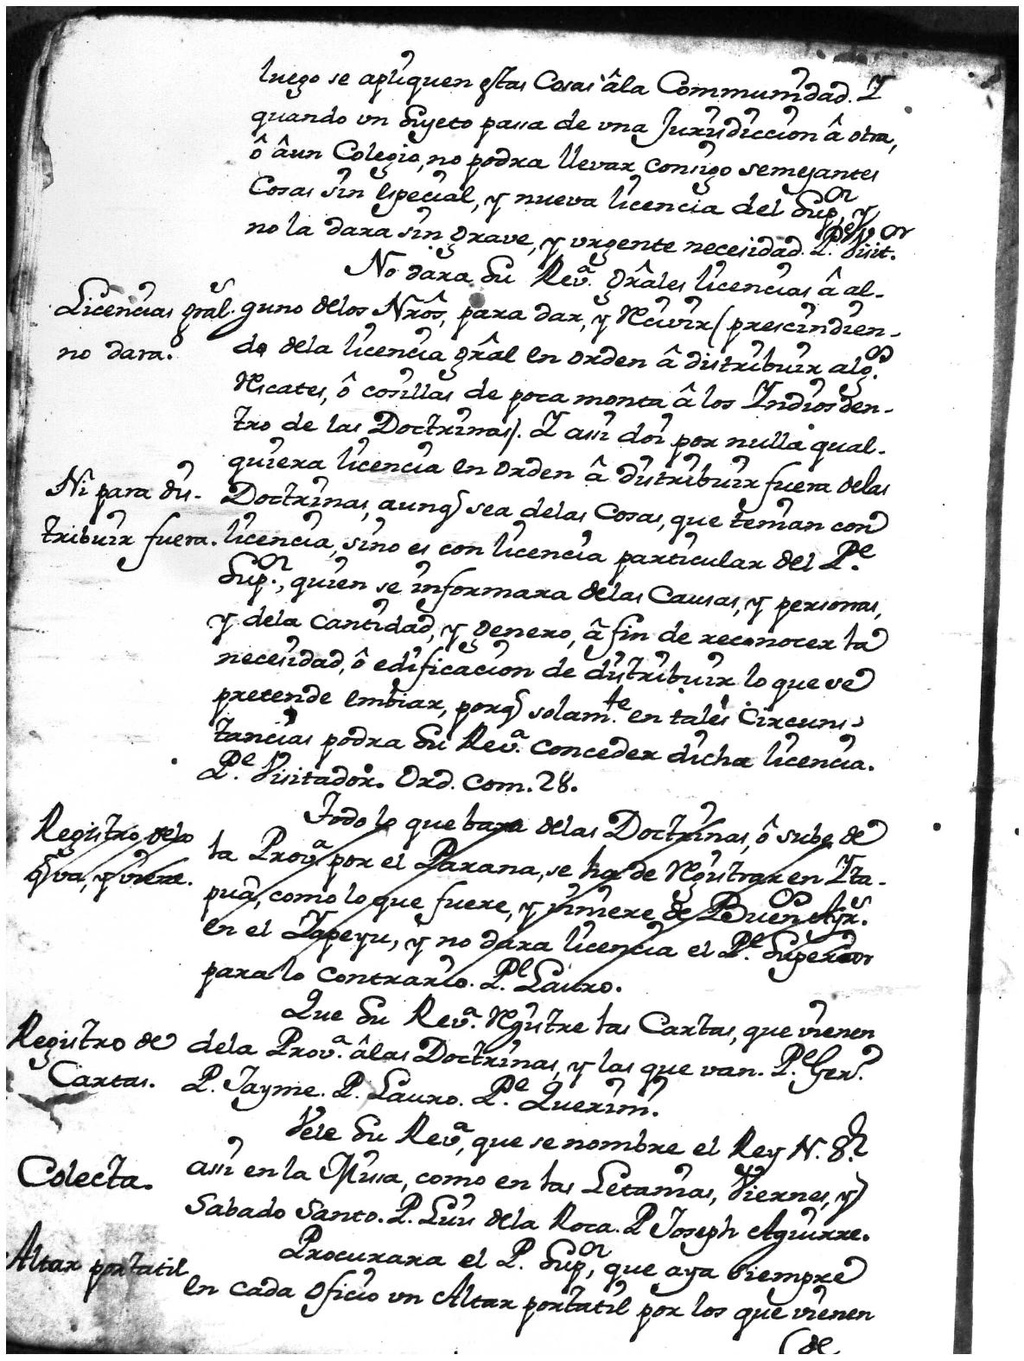 luego se apliquen estas Cosas âla Communidad. Y
quando vn Sugeto passa de vna Jurisdiccion â otra,
ô âun Colegio, no podra llevar consigo semejantes
Cosas sin especial, y nueva licencia del Supor, y
no la dara sin grave, y vrgente necesidad. Pe. Visit.or
No dara Su Reva. grâles licencias â al-
Licencias grâl.
no dara.
guno delos Nrôs, para dar, y recivir (prescindien-
do dela licencia grâl en orden â distribuir algos.
rescates, ô cosillas de poca monta â los Indios den-
tro de las Doctrinas). Y assi doi por nulla qual-
quiera licencia en orden â distribuir fuera delas
Ni para dis-
tribuir fuera.
Doctrinas, aunq sea delas Cosas, que tenian con
licencia, sino es con licencia particular del Pe.
Supor., quien se informara delas Causas, y personas,
y dela cantidad, y genero, â fin de reconocer la
necesidad, ô edificacion de distribuir lo que se
pretende embiar, porq solamte. en tales Circuns-
tancias podra Su Reva. conceder dicha licencia.
Pe. Visitador. Ord. Com. 28.
Registro delo
q va, y viene.
Todo lo que baxa delas Doctrinas, ô sube de
la Prova. por el Parana, se ha de registrar en Ita-
puâ, como lo que fuere, y viniere de Buenos Ayrs.
en el Yapeyu, y no dara licencia el Pe. Superior
para lo contrario. Pe. Lauro.
Registro de
Cartas.
Que Su Reva. registre las Cartas, que vienen
dela Prova. âlas Doctrinas, y las que van. Pe. Gerl.
P. Jayme. P. Lauro. Pe. Querini.
Colecta.
Vele Su Reva, que se nombre el Rey N. Sr.
assi en la Missa, como en las Letanias, Viernes, y
Sabado Santo. P. Luis dela Roca. P. Joseph Aguirre.
Altar portatil
Procurara el P. Supor, que aya siempre
en cada oficio vn Altar portatil por los que vienen
(de